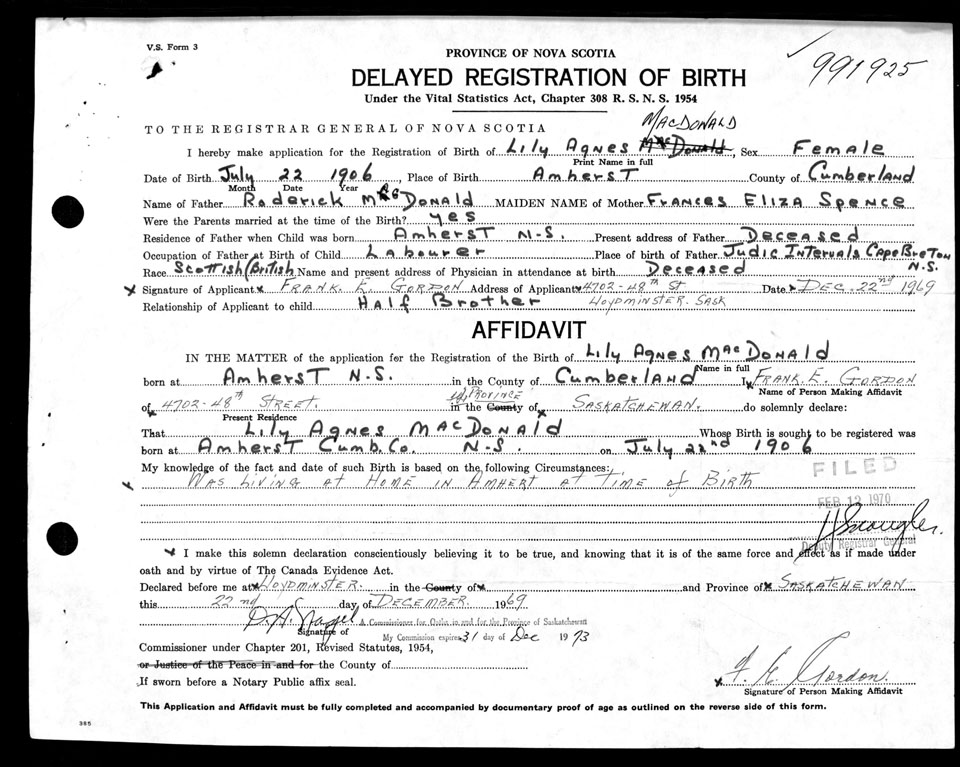 V.S. Form 3
991925
PROVINCE OF NOVA SCOTIA
DELAYED REGISTRATION OF BIRTH
Under the Vital Statistics Act, Chapter 308 R. S. N. S. 1954
TO THE REGISTRAR GENERAL OF NOVA SCOTIA
MacDonald
I hereby make application for the Registration of Birth of Lily Agnes MacDonald, Sex Female
Print Name in full
Date of Birth July 22 1906, Place of Birth Amherst County of Cumberland
Month Date Year
Name of Father Roderick MacDonald MAIDEN NAME of Mother Frances Eliza Spence
Were the Parents married at the time of the Birth? yes
Residence of Father when Child was born Amherst N-S. Present address of Father Deceased
Occupation of Father at Birth of Child Labourer Place of birth of Father Judic Intervals Cape Breton
N.S.
Race Scottish (British Name and present address of Physician in attendance at birth Deceased
x Signature of Applicant x Frank. E. Gordon Address of Applicant x 4702-48th St Date x Dec. 22nd 1969
Relationship of Applicant to child Half Brother Lloydminster. Sask
AFFIDAVIT
IN THE MATTER of the application for the Registration of the Birth of Lily Agnes MacDonald
Name in full
born at Amherst N.S. in the County of Cumberland I, x Frank. E. Gordon
Name of Person Making Affidavit
Province
of x 4702-48th Street. in the County of x Saskatchewan. do solemnly declare:
Present Residence
That Lily Agnes MacDonald Whose Birth is sought to be registered was
born at Amherst Cumb. Co. N-S. on July 22nd 1906
My knowledge of the fact and date of such Birth is based on the following Circumstances:
x Was living at Home in Amhert at time of Birth
FILED
FEB 12 1970
Deputy Registrar General
x I make this solemn declaration conscientiously believing it to be true, and knowing that it is of the same force and effect as if made under
oath and by virtue of The Canada Evidence Act.
Declared before me at x Lloydminster. in the County of x and Province of x Saskatchewan
this 22nd day of December. 1969.
A Commissioner for Oaths in and for the Province of Saskatchewan
Signature of My Commission expires 31 day of Dec 1973
Commissioner under Chapter 201, Revised Statutes, 1954,
or Justice of the Peace in and for the County of
If sworn before a Notary Public affix seal.
x F. E. Gordon.
Signature of Person Making Affidavit
This Application and Affidavit must be fully completed and accompanied by documentary proof of age as outlined on the reverse side of this form.
385